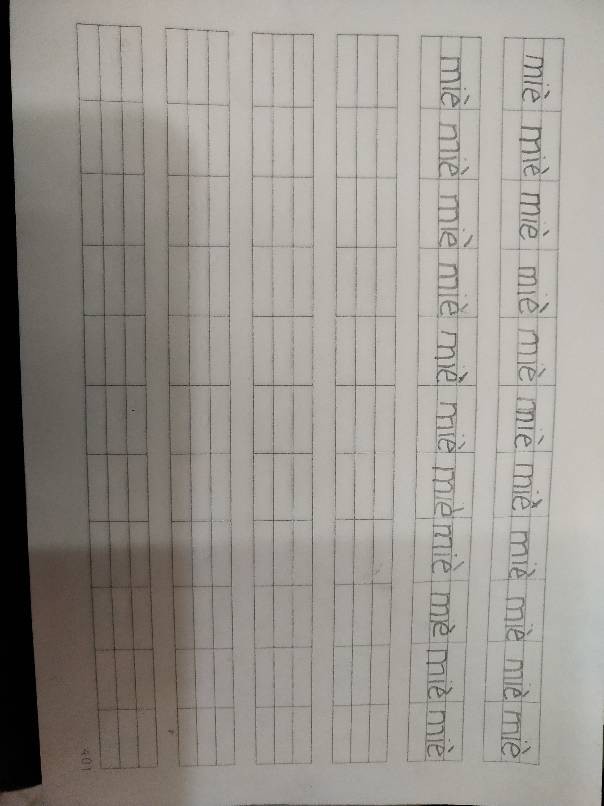 miè miè miè miè miè miè miè miè miè miè miè
miè miè miè miè miè miè miè miè mè miè miè
401